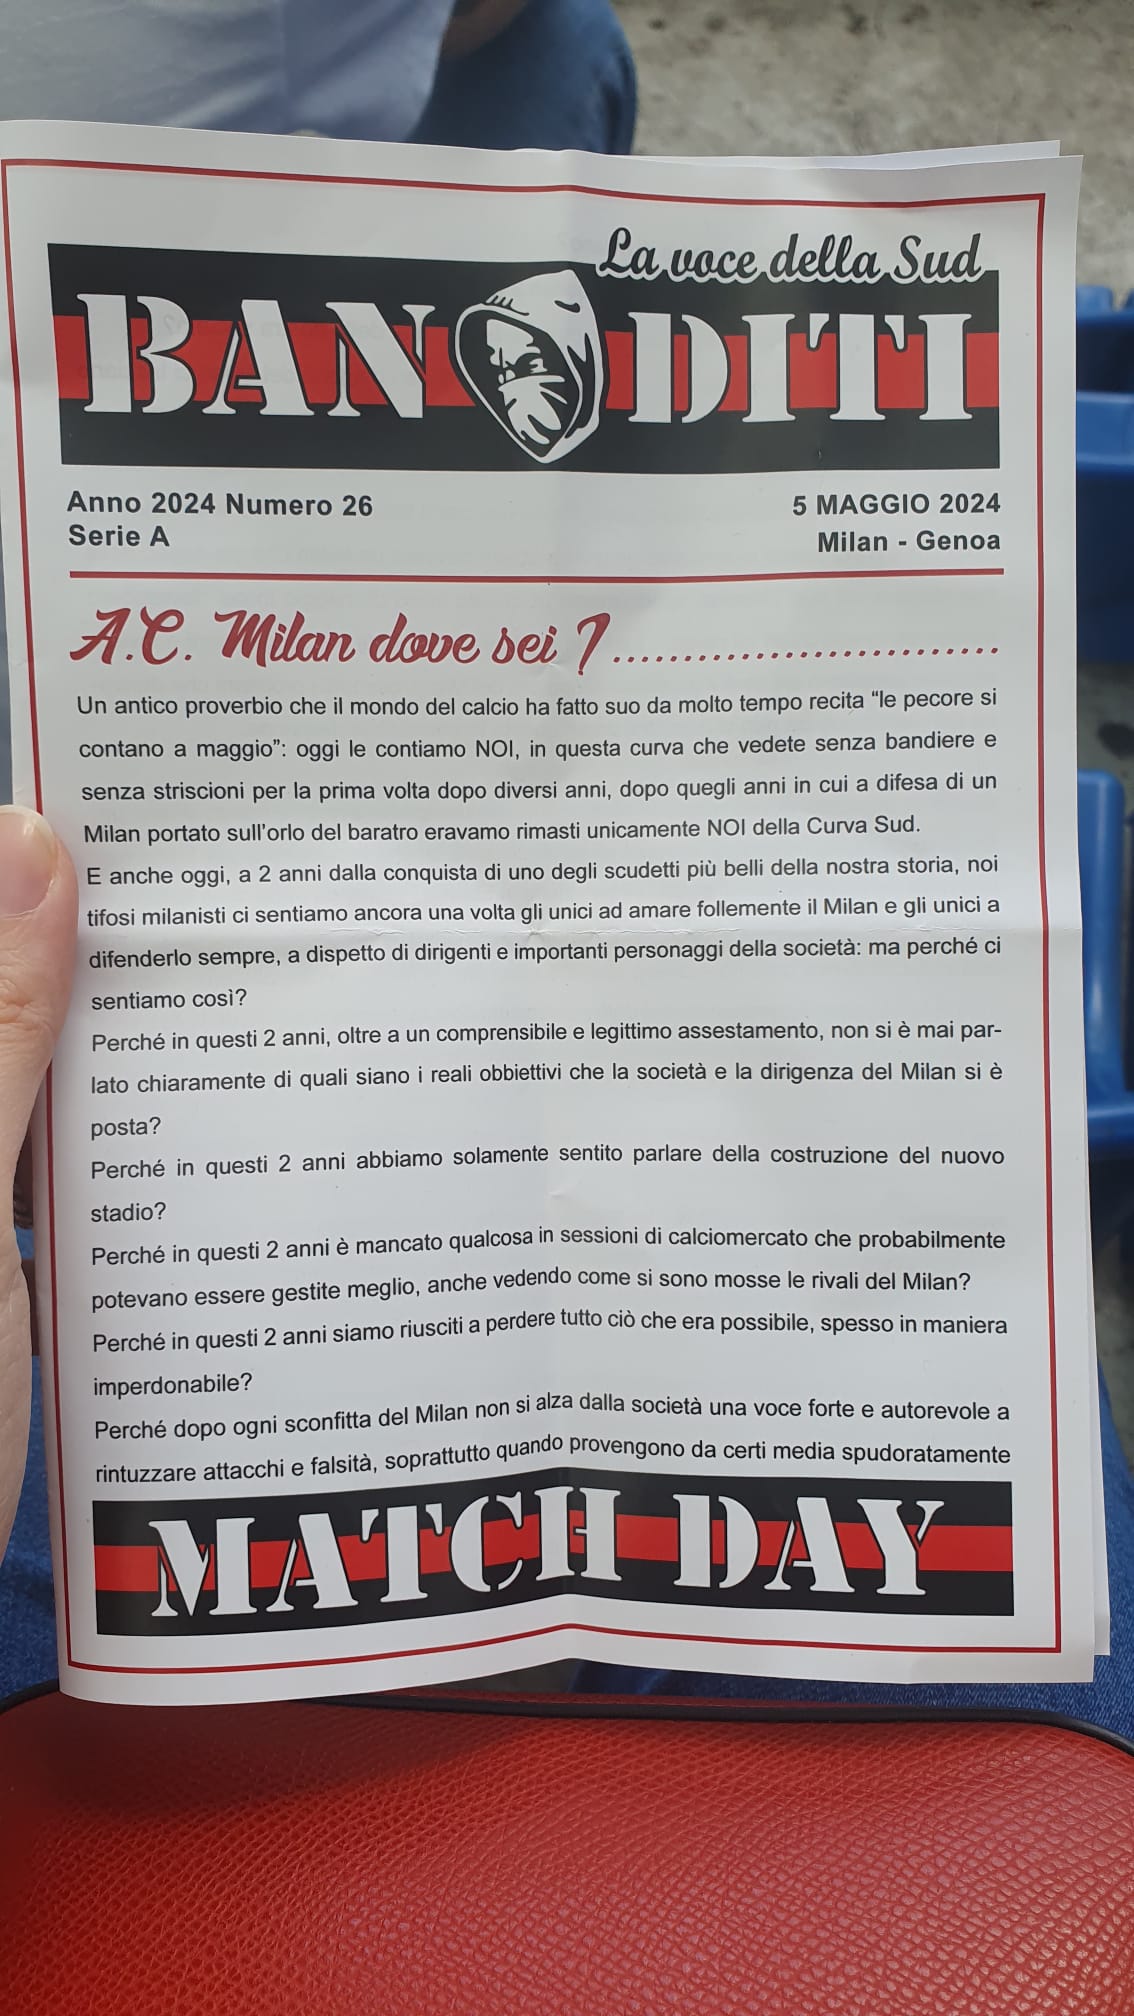 La voce della Sud
BANDITI
Anno 2024 Numero 26
5 MAGGIO 2024
Serie A
Milan - Genoa
A.C. Milan dove sei ?...........................
Un antico proverbio che il mondo del calcio ha fatto suo da molto tempo recita “le pecore si
contano a maggio”: oggi le contiamo NOI, in questa curva che vedete senza bandiere e
senza striscioni per la prima volta dopo diversi anni, dopo quegli anni in cui a difesa di un
Milan portato sull’orlo del baratro eravamo rimasti unicamente NOI della Curva Sud.
E anche oggi, a 2 anni dalla conquista di uno degli scudetti più belli della nostra storia, noi
tifosi milanisti ci sentiamo ancora una volta gli unici ad amare follemente il Milan e gli unici a
difenderlo sempre, a dispetto di dirigenti e importanti personaggi della società: ma perché ci
sentiamo così?
Perché in questi 2 anni, oltre a un comprensibile e legittimo assestamento, non si è mai par-
lato chiaramente di quali siano i reali obbiettivi che la società e la dirigenza del Milan si è
posta?
Perché in questi 2 anni abbiamo solamente sentito parlare della costruzione del nuovo
stadio?
Perché in questi 2 anni è mancato qualcosa in sessioni di calciomercato che probabilmente
potevano essere gestite meglio, anche vedendo come si sono mosse le rivali del Milan?
Perché in questi 2 anni siamo riusciti a perdere tutto ciò che era possibile, spesso in maniera
imperdonabile?
Perché dopo ogni sconfitta del Milan non si alza dalla società una voce forte e autorevole a
rintuzzare attacchi e falsità, soprattutto quando provengono da certi media spudoratamente
MATCH DAY